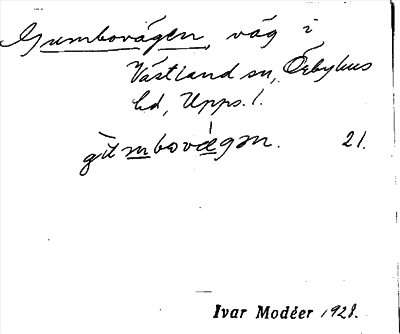 Gumbovägen, väg i
Västland sn, Örbyhus
hd, Upps. l.
gu̇mbovägən. 21.
Ivar Modéer 1928.